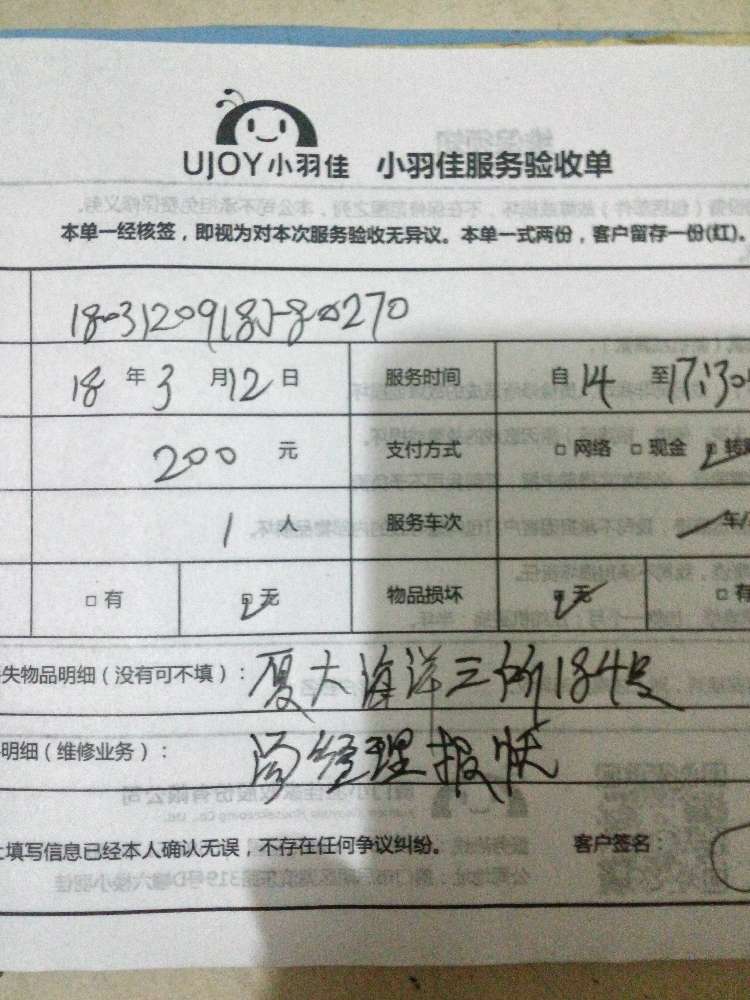 UJOY小羽佳 小羽佳服务验收单
本单一经核签，即视为对本次服务验收无异议。本单一式两份，客户留存一份(红)。
18年3月12日 服务时间 自14至17:30
200元 支付方式 □网络 □现金 □转
1人 服务车次 车/
□有 □无 物品损坏 □无 □有
失物品明细（没有可不填）：厦大海洋三所184号
明细（维修业务）：汤经理报账
填写信息已经本人确认无误，不存在任何争议纠纷。 客户签名：